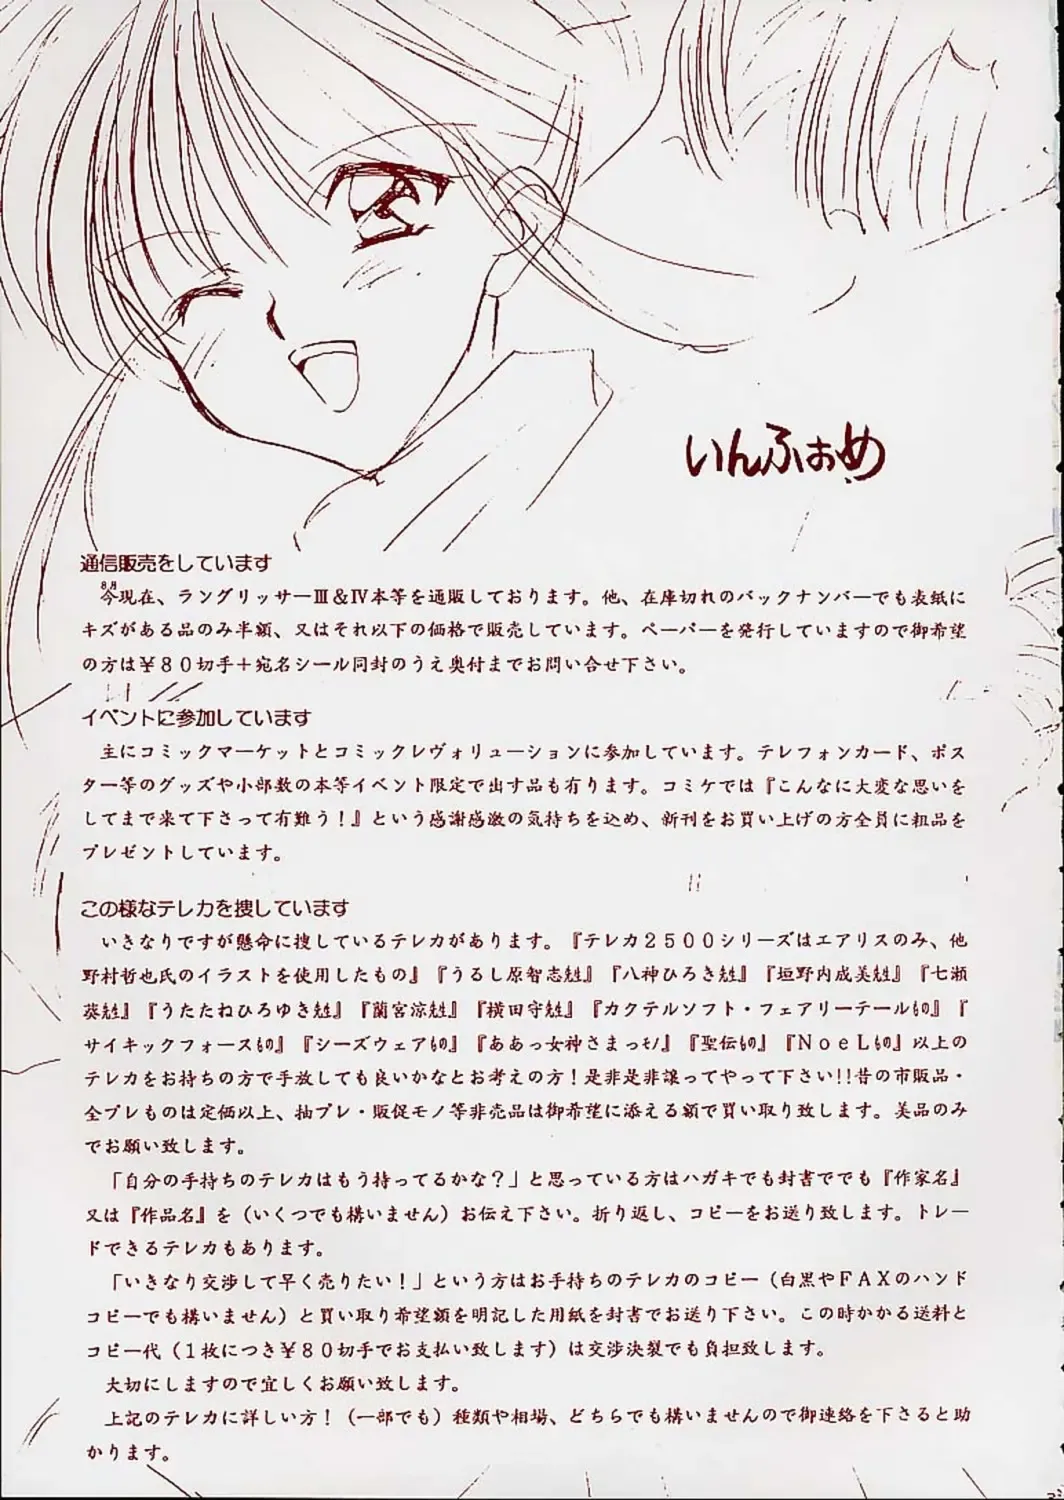 いんふぉめ
通信販売をしています
8月
今現在、ラングリッサーⅢ&Ⅳ本等を通販しております。他、在庫切れのバックナンバーでも表紙に
キズがある品のみ半額、又はそれ以下の価格で販売しています。ペーパーを発行していますので御希望
の方は¥80切手+宛名シール同封のうえ奥付までお問い合せ下さい。
イベントに参加しています
主にコミックマーケットとコミックレヴォリューションに参加しています。テレフォンカード、ポス
ター等のグッズや小部数の本等イベント限定で出す品も有ります。コミケでは『こんなに大変な思いを
してまで来て下さって有難う!』という感謝感激の気持ちを込め、新刊をお買い上げの方全員に粗品を
プレゼントしています。
この様なテレカを捜しています
いきなりですが懸命に捜しているテレカがあります。『テレカ2500シリーズはエアリスのみ、他
野村哲也氏のイラストを使用したもの』『うるし原智志』『八神ひろき』『垣野内成美』『七瀬
葵』『うたたねひろゆき』『蘭宮涼』『横田守』『カクテルソフト・フェアリーテールもの』『
サイキックフォースもの』『シーズウェアもの』『ああっ女神さまっモノ』『聖伝もの』『NoeLもの』以上の
テレカをお持ちの方で手放しても良いかなとお考えの方!是非是非譲ってやって下さい!!昔の市販品・
全プレものは定価以上、抽プレ・販促モノ等非売品は御希望に添える額で買い取り致します。美品のみ
でお願い致します。
「自分の手持ちのテレカはもう持ってるかな?」と思っている方はハガキでも封書ででも『作家名』
又は『作品名』を(いくつでも構いません)お伝え下さい。折り返し、コピーをお送り致します。トレー
ドできるテレカもあります。
「いきなり交渉して早く売りたい!」という方はお手持ちのテレカのコピー(白黒やFAXのハンド
コピーでも構いません)と買い取り希望額を明記した用紙を封書でお送り下さい。この時かかる送料と
コピー代(1枚につき¥80切手でお支払い致します)は交渉決裂でも負担致します。
大切にしますので宜しくお願い致します。
上記のテレカに詳しい方!(一部でも)種類や相場、どちらでも構いませんので御連絡を下さると助
かります。